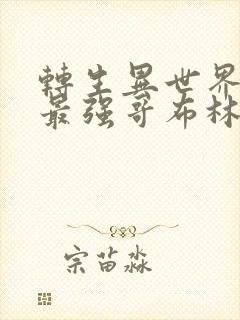 轉生異世界
最强哥布林
宗苗淼